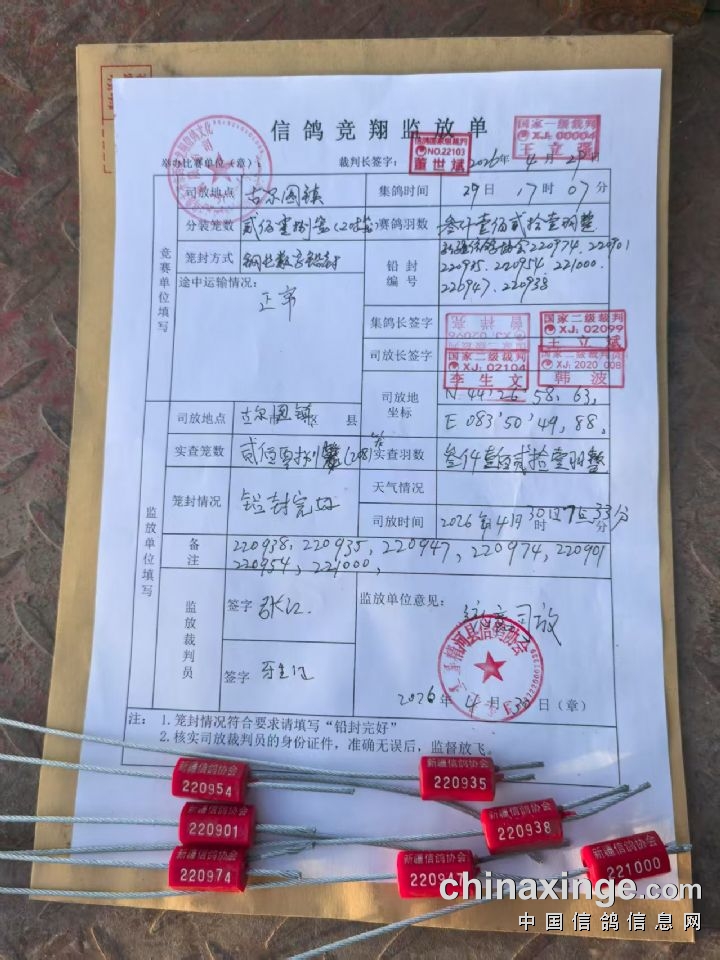 信鸽竞翔监放单
国家一级裁判
XJ: 00004
王立强
举办比赛单位（章）：
裁判长签字：
信鸽国家级裁判
NO.22103
董世斌
2026年4月29日
司放地点 古尔图镇 集鸽时间 29日17时07分
分装笼数 贰佰零捌笼(208笼) 赛鸽羽数 叁仟壹佰贰拾壹羽整
笼封方式 钢丝数字铅封
铅封编号 新疆信鸽协会220974、220901
220935、220954、221000、
220947、220938
途中运输情况：
正常
竞赛单位填写
集鸽长签字
国家二级裁判
XJ: 02099
王立斌
司放长签字
国家二级裁判
XJ: 02104
李生文
国家二级裁判员
XJ: 2020 008
韩波
司放地坐标
N 44°26′58.63,
E 083°50′49.88,
司放地点 古尔图镇 县
实查笼数 贰佰零捌笼(208笼) 实查羽数 叁仟壹佰贰拾壹羽整
笼封情况 铅封完好 天气情况
司放时间 2026年4月30日7时33分
备注 220938、220935、220947、220974、220901
220954、221000、
监放单位填写
监放裁判员
签字 张江
签字
监放单位意见：
同意司放
精河县信鸽协会
2026年4月30日（章）
注： 1.笼封情况符合要求请填写“铅封完好”
2.核实司放裁判员的身份证件，准确无误后，监督放飞。
新疆信鸽协会
220954
新疆信鸽协会
220935
新疆信鸽协会
220901
新疆信鸽协会
220938
新疆信鸽协会
220974
新疆信鸽协会
220947
新疆信鸽协会
221000
chinaxinge.com
中国信鸽信息网